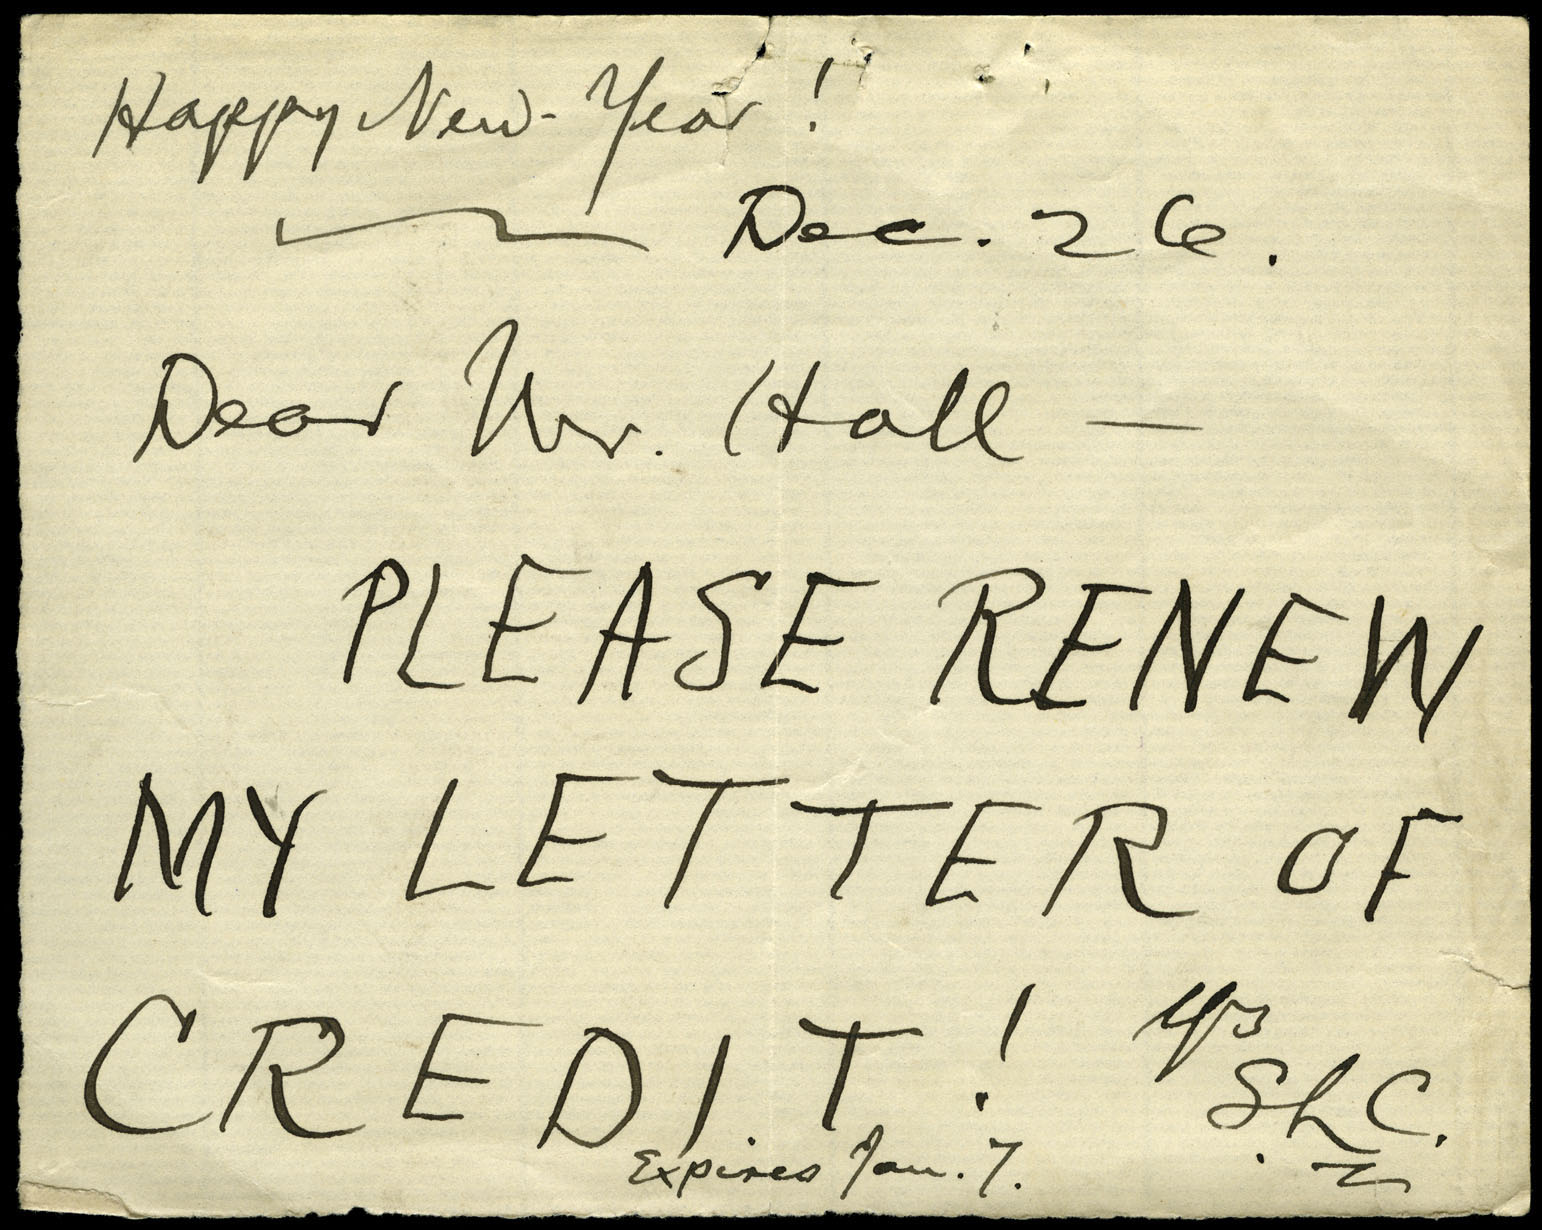 Happy New-Year!
Dec. 26.
Dear Mr. Hall —
PLEASE RENEW
MY LETTER OF
CREDIT! Yrs
SLC.
Expires Jan. 7.